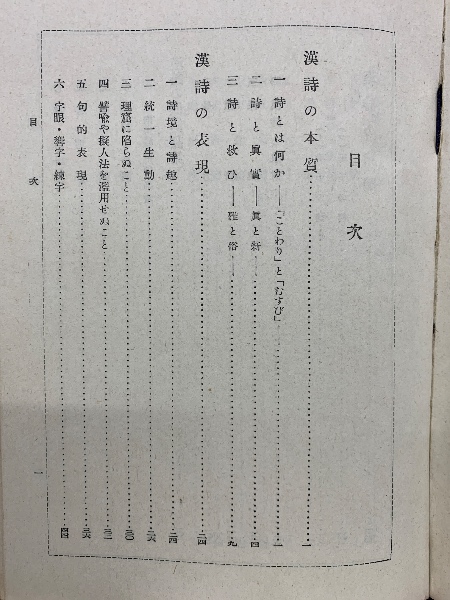 目次
漢詩の本質……一
一 詩とは何か——「ことわり」と「むすび」……一
二 詩と眞實——眞と新……四
三 詩と救ひ——雅と俗——……九
漢詩の表現……二四
一 詩境と詩趣……二四
二 統一生動……二六
三 理窟に陷らぬこと……三〇
四 譬喩や擬人法を濫用せぬこと……三二
五 句的表現……三六
六 字眼・響字・練字……四四
目次
一